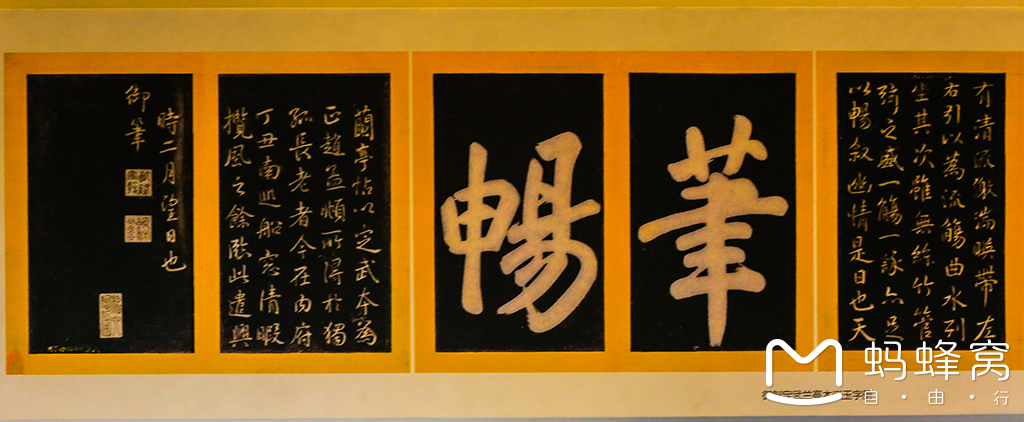 有清流激湍暎帶左
右引以為流觴曲水列
坐其次雖無絲竹管
弦之盛一觴一詠亦足
以暢敘幽情是日也天
筆
暢
蘭亭帖以定武本為
正趙孟頫所得於獨
孤長老者今在內府
丁丑南巡船窓清暇
攬風之餘臨此遣興
時二月望日也
御筆
蚂蜂窝
自·由·行